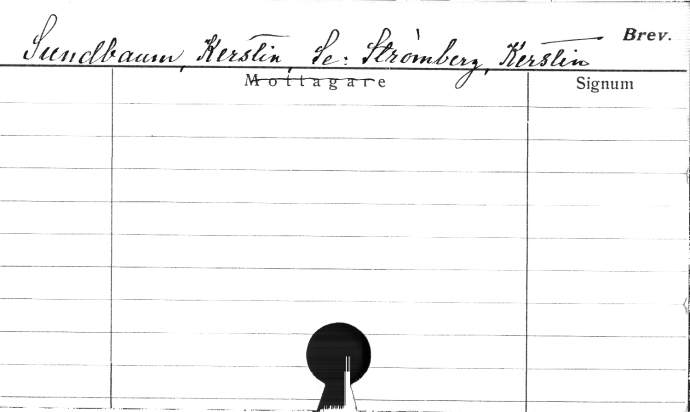 Sundbaum, Kerstin, Se: Strömberg, Kerstin Brev.
Mottagare Signum